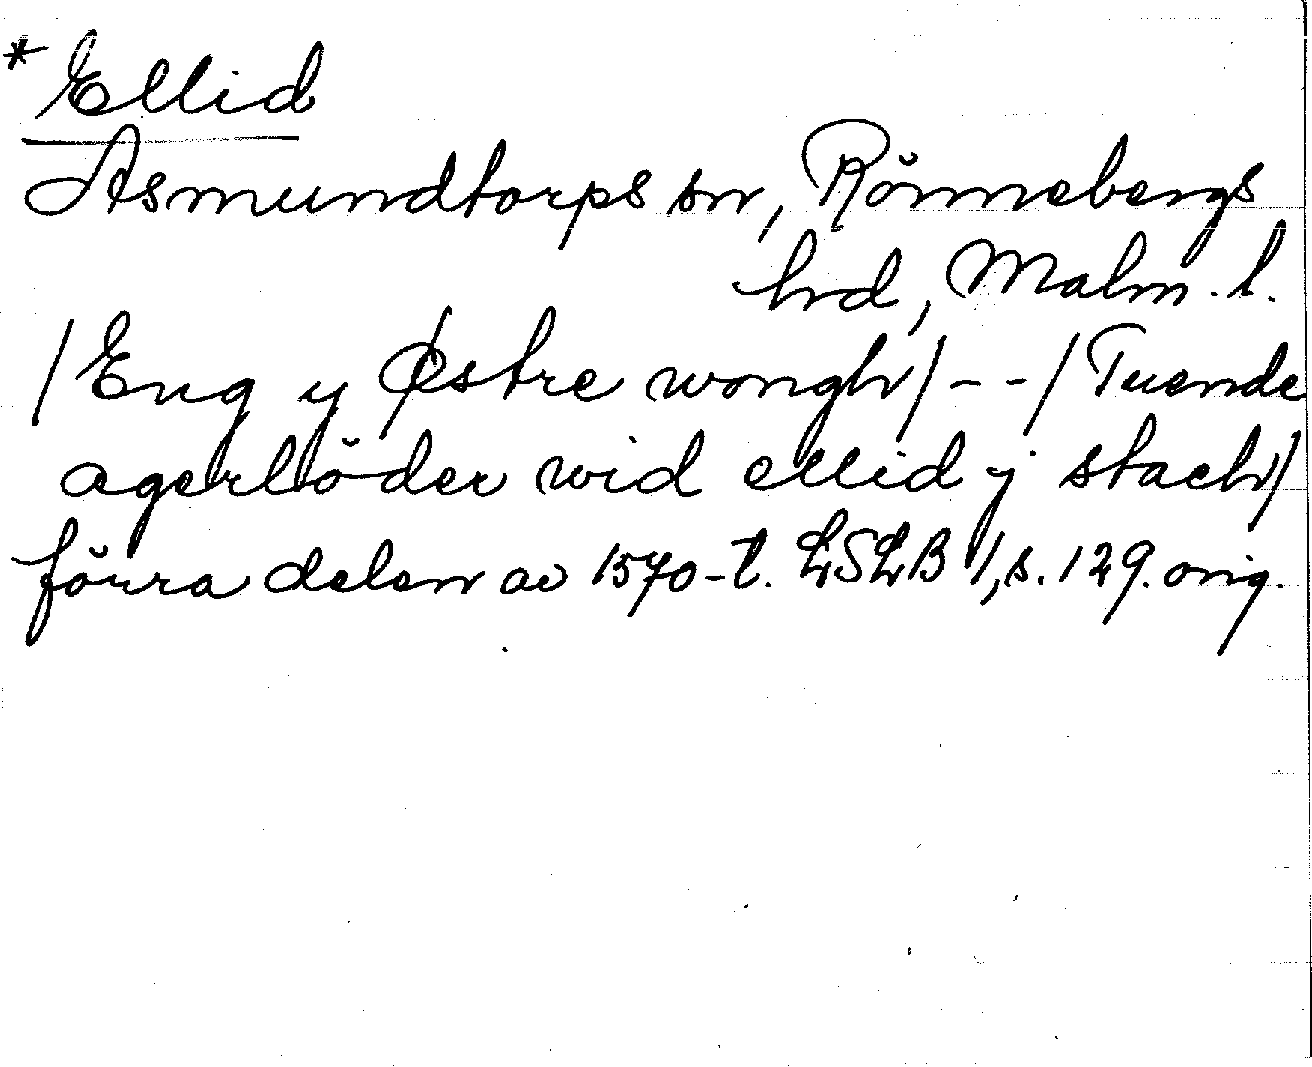 * Ellid
Asmundtorps sn, Rönnebergs
hd, Malm. l.
/Eng y Østre wongh/ - - / Tuende
agerlöder wid ellid j stach/
förra delen av 1570-t. LSLB 1, s. 129. orig.